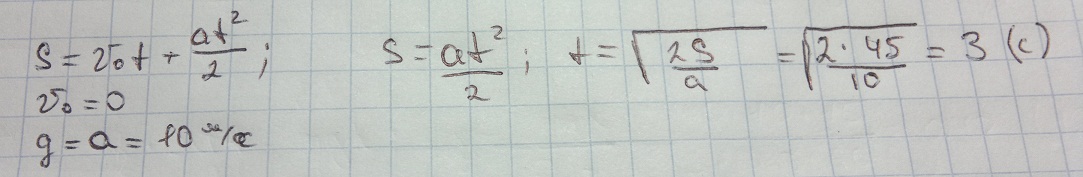 S = v₀t + at²/2; S = at²/2; t = √(2S/a) = √(2·45/10) = 3 (с)
v₀ = 0
g = a = 10 м/с